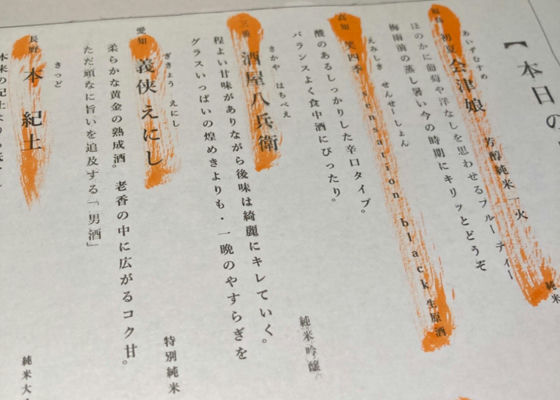 【本日の
あいずむすめ
初夏 会津娘 芳醇純米一火
純米
ほのかに葡萄や洋なしを思わせるフルーティー
梅雨前の蒸し暑い今の時期にキリッとどうぞ
えみしき せんせーしょん
笑四季 sensation black 生原酒
酸のあるしっかりした辛口タイプ。
バランスよく食中酒にぴったり。
さかや はちべえ
酒屋八兵衛
純米吟醸
程よい甘味がありながら後味は綺麗にキレていく。
グラスいっぱいの煌めきよりも・一晩のやすらぎを
ぎきょう えにし
愛知 義侠えにし
特別純米
柔らかな黄金の熟成酒。老香の中に広がるコク甘。
ただ頑なに旨いを追及する「男酒」
きっど
長野 本 紀土
純米大